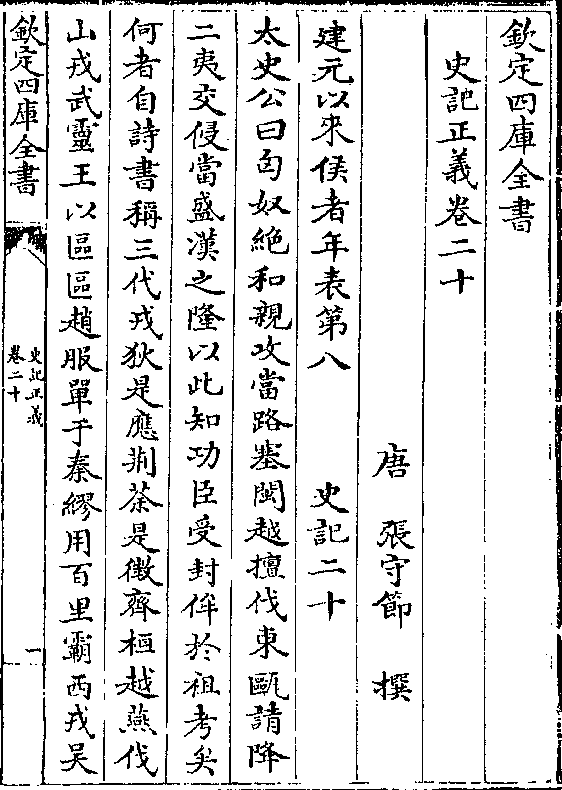 欽定四庫全書
史記正義卷二十
唐 張守節 撰
建元以來侯者年表第八 史記二十
太史公曰匈奴絶和親攻當路塞閩越擅伐東甌請降
二夷交侵當盛漢之隆以此知功臣受封侔於祖考矣
何者自詩書稱三代戎狄是應荆荼是徴齊桓越燕伐
山戎武靈王以區區趙服單于秦繆用百里霸西戎吴
欽定四庫全書
史記正義
卷二十
一